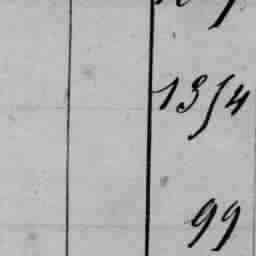 1354
99